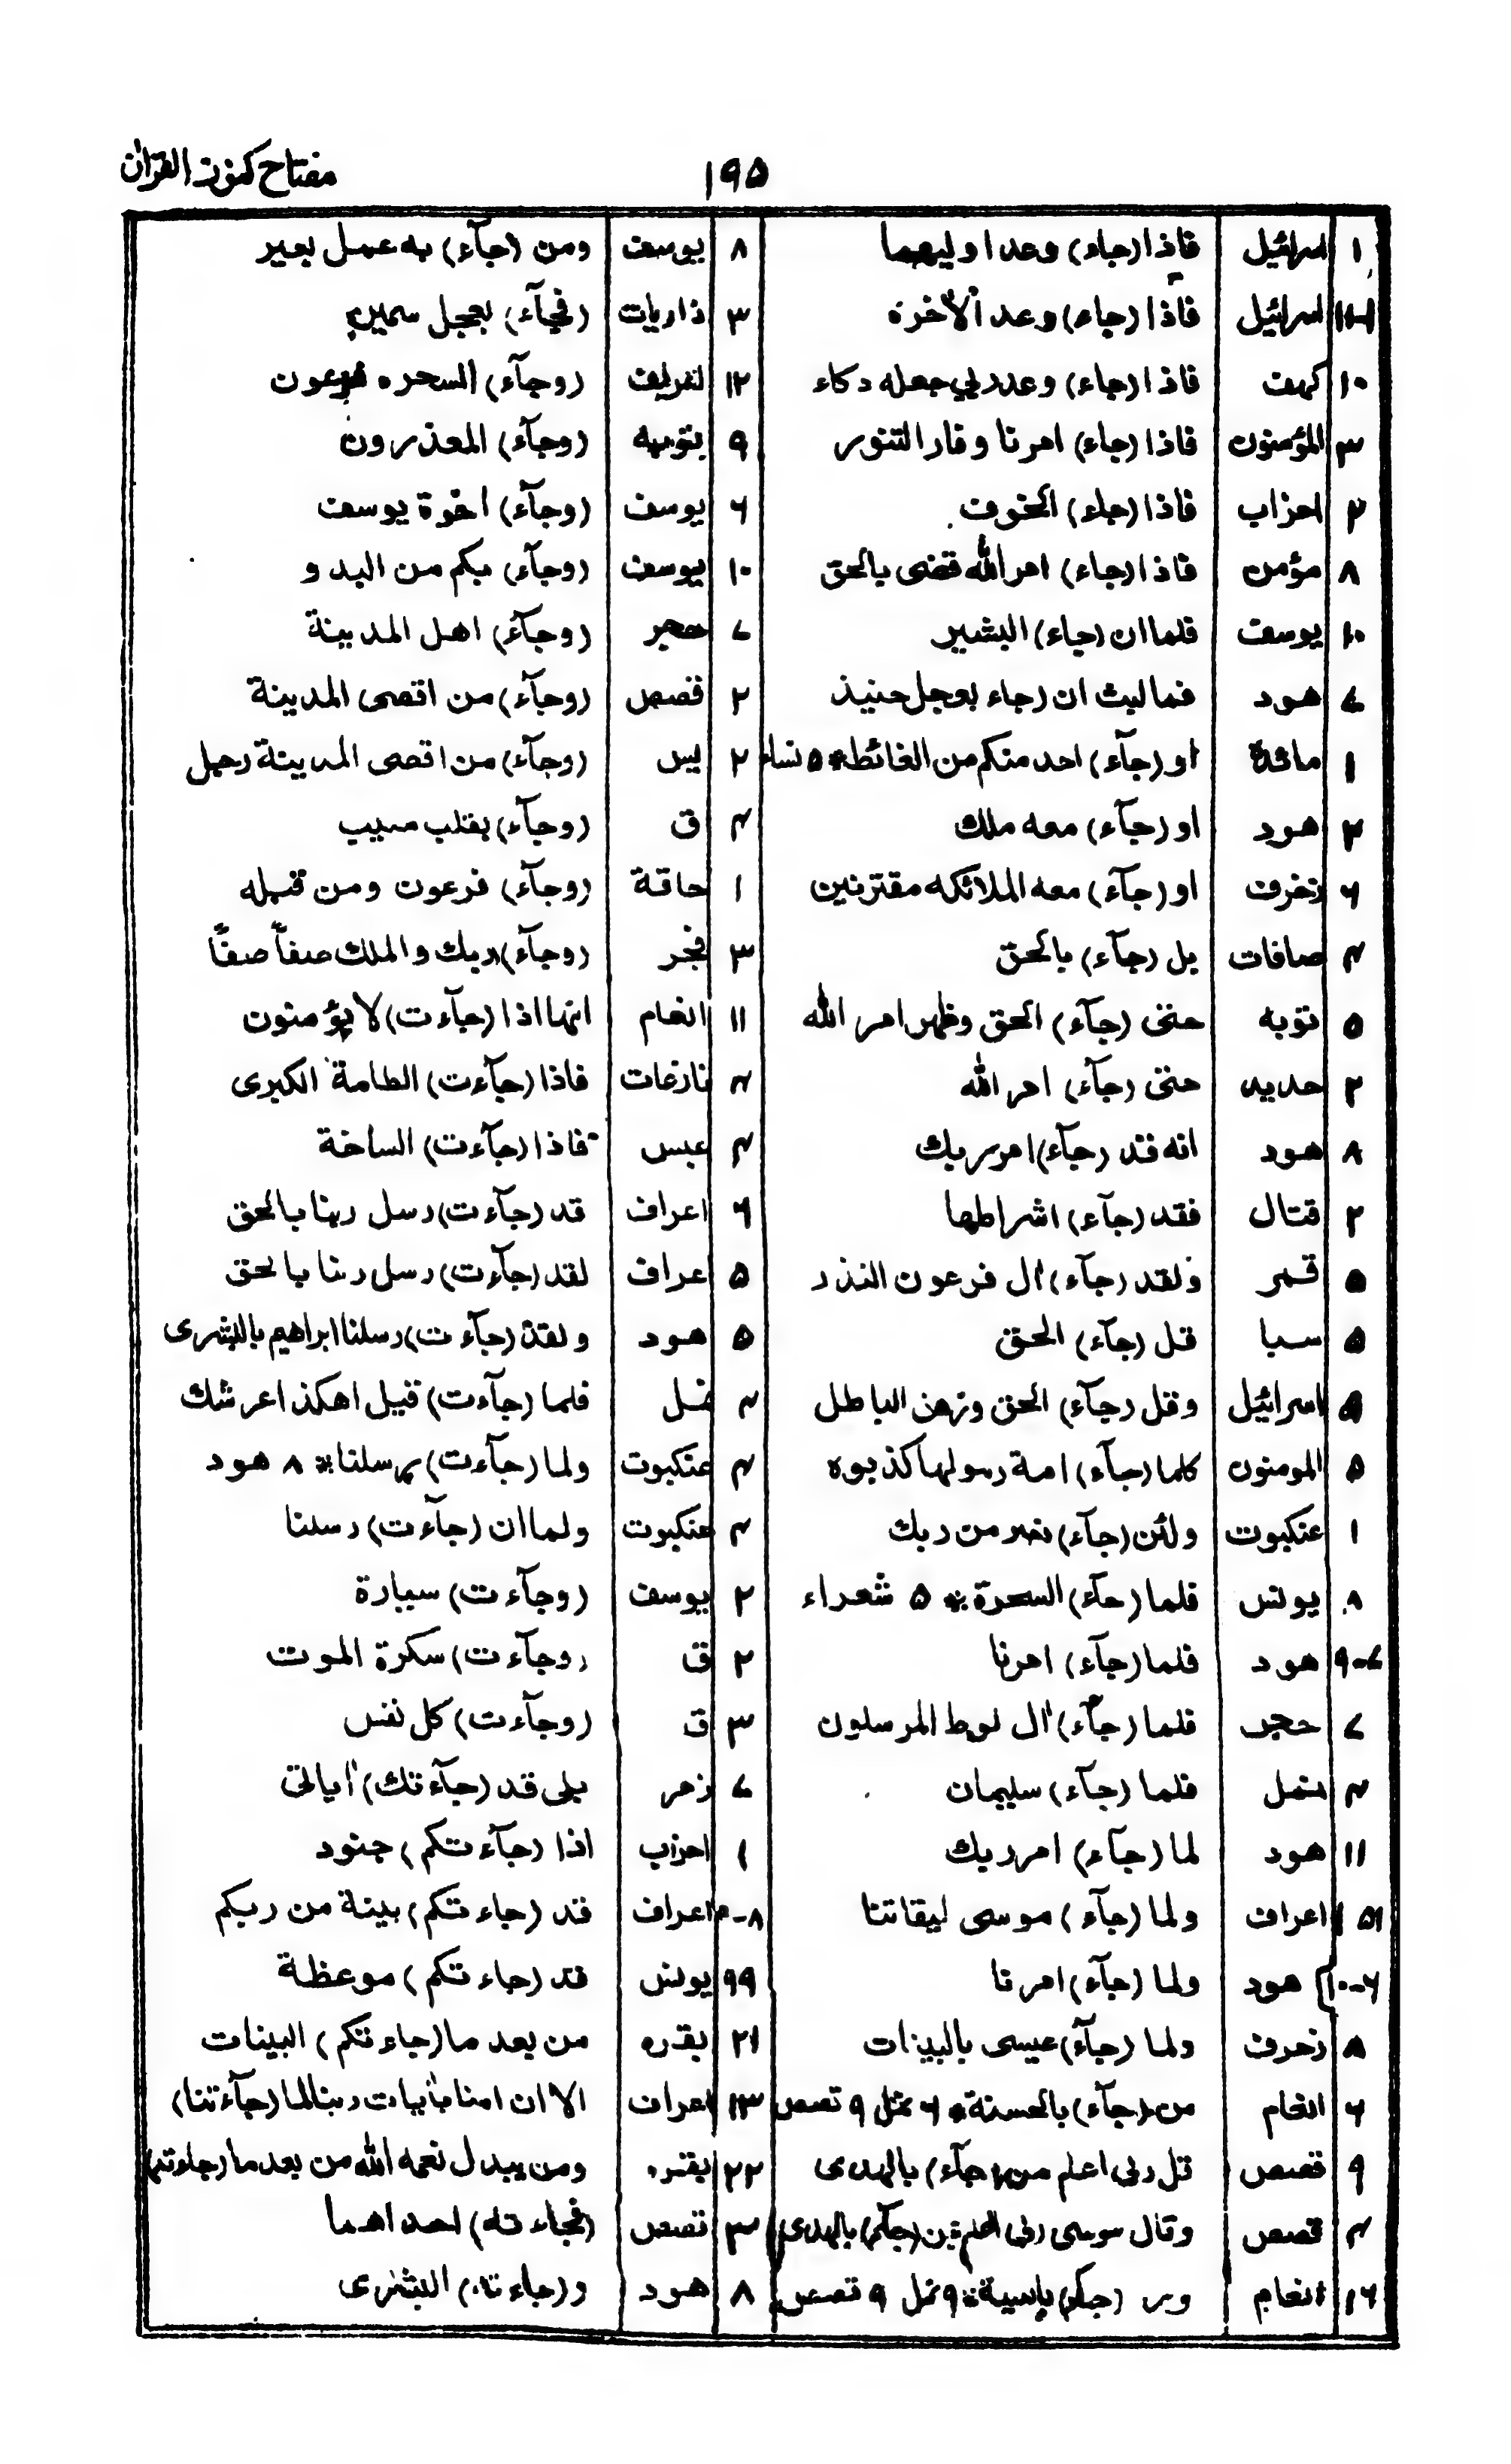 مفتاح کنوز القرآن
۱۹۵
۱ اسرائيل فاذا (جاء) وعد اوليهما
اسرائيل فاذا (جاء) وعد الآخرة
۱۰ كهف فاذا (جاء) وعد ربي جعله دكاء
۳ المؤمنون فاذا (جاء) امرنا وفار التنور
۲ احزاب فاذا (جاء) الخوف
۸ مؤمن فاذا (جاء) امر الله قضى بالحق
۱۰ يوسف فلما ان (جاء) البشير
۷ هود فما لبث ان (جاء بعجل حنيذ
۱ مائدة او (جآء) احد منكم من الغائط * ۵ نساء
۲ هود او (جآء) معه ملك
۶ زخرف او (جآء) معه الملائكه مقترنين
۲ صافات بل (جآء) بالحق
۵ توبه حتى (جآء) الحق وظهر امر الله
۲ حديد حتى (جآء) امر الله
۸ هود انه قد (جآء) امر ربك
۲ قتال فقد (جآء) اشراطها
۵ قمر ولقد (جآء) آل فرعون النذر
۵ سبا قل (جآء) الحق
۹ اسرائيل وقل (جآء) الحق وزهق الباطل
۵ المومنون كلما (جآء) امة رسولها كذبوه
۱ عنكبوت ولئن (جآء) نصر من ربك
۸ يونس فلما (جآء) السحرة * ۵ شعراء
۷-۹ هود فلما (جآء) امرنا
۷ حجر فلما (جآء) آل لوط المرسلون
۴ نمل فلما (جآء) سليمان
۱۱ هود لما (جآء) امر ربك
اعراف ولما (جآء) موسى ليقاتنا
۶-۱۰ هود ولما (جآء) امرنا
۸ زخرف ولما (جآء) عيسى بالبينات
۶ انعام من (جآء) بالحسنة * ۶ نمل ۹ قصص
۹ قصص قل ربى اعلم من (جآء) بالهدى
۴ قصص وقال موسى ربى اعلم بمن (جآء) بالهدى
۱۶ انعام * ۹ نمل ۹ قصص
۸ يوسف ومن (جآء) به عمل بعير
۳ ذاريات (فجآء) بعجل سمين
۱۲ (وجآء) السحره فرعون
۹ بتوبه (وجآء) المعذرون
۶ يوسف (وجآء) اخوة يوسف
۱۰ يوسف (وجآء) بكم من البدو
۷ حجر (وجآء) اهل المدينة
۲ قصص (وجآء) من اقصى المدينة
۲ يس (وجآء) من اقصى المدينة رجل
۴ ق (وجآء) بقلب منيب
۱ حاقة (وجآء) فرعون ومن قبله
۳ فجر (وجآء) ربك والملك صفاً صفاً
۱۱ انعام انها اذا (جآءت) لا يؤمنون
۴ نازعات فاذا (جآءت) الطامة الكبرى
۴ عبس فاذا (جآءت) الساخة
۶ اعراف قد (جآءت) رسل ربنا بالحق
۵ اعراف لقد (جآءت) رسل ربنا بالحق
۵ هود ولقد (جآءت) رسلنا ابراهيم بالبشرى
۴ نمل فلما (جآءت) قيل اهكذا عرشك
۴ عنكبوت ولما (جآءت) رسلنا * ۸ هود
۴ عنكبوت ولما ان (جآءت) رسلنا
۲ يوسف (وجآءت) سيارة
۲ ق (وجآءت) سكرة الموت
۳ ق (وجآءت) كل نفس
۷ زمر بلى قد (جآءتك) آياتى
۱ احزاب اذا (جآءتكم) جنود
اعراف قد (جاءتكم) بينة من ربكم
۹۹ يونس قد (جاءتكم) موعظة
۲۱ بقره من بعد ما (جاءتكم) البينات
۱۳ اعراف الا ان امنا بآيات ربنا لما (جآءتنا)
۲۲ بقره ومن يبدل نعمه الله من بعد ما (جاءته)
۳ قصص (فجاءته) احداهما
۸ هود و(جاءته) البشرى